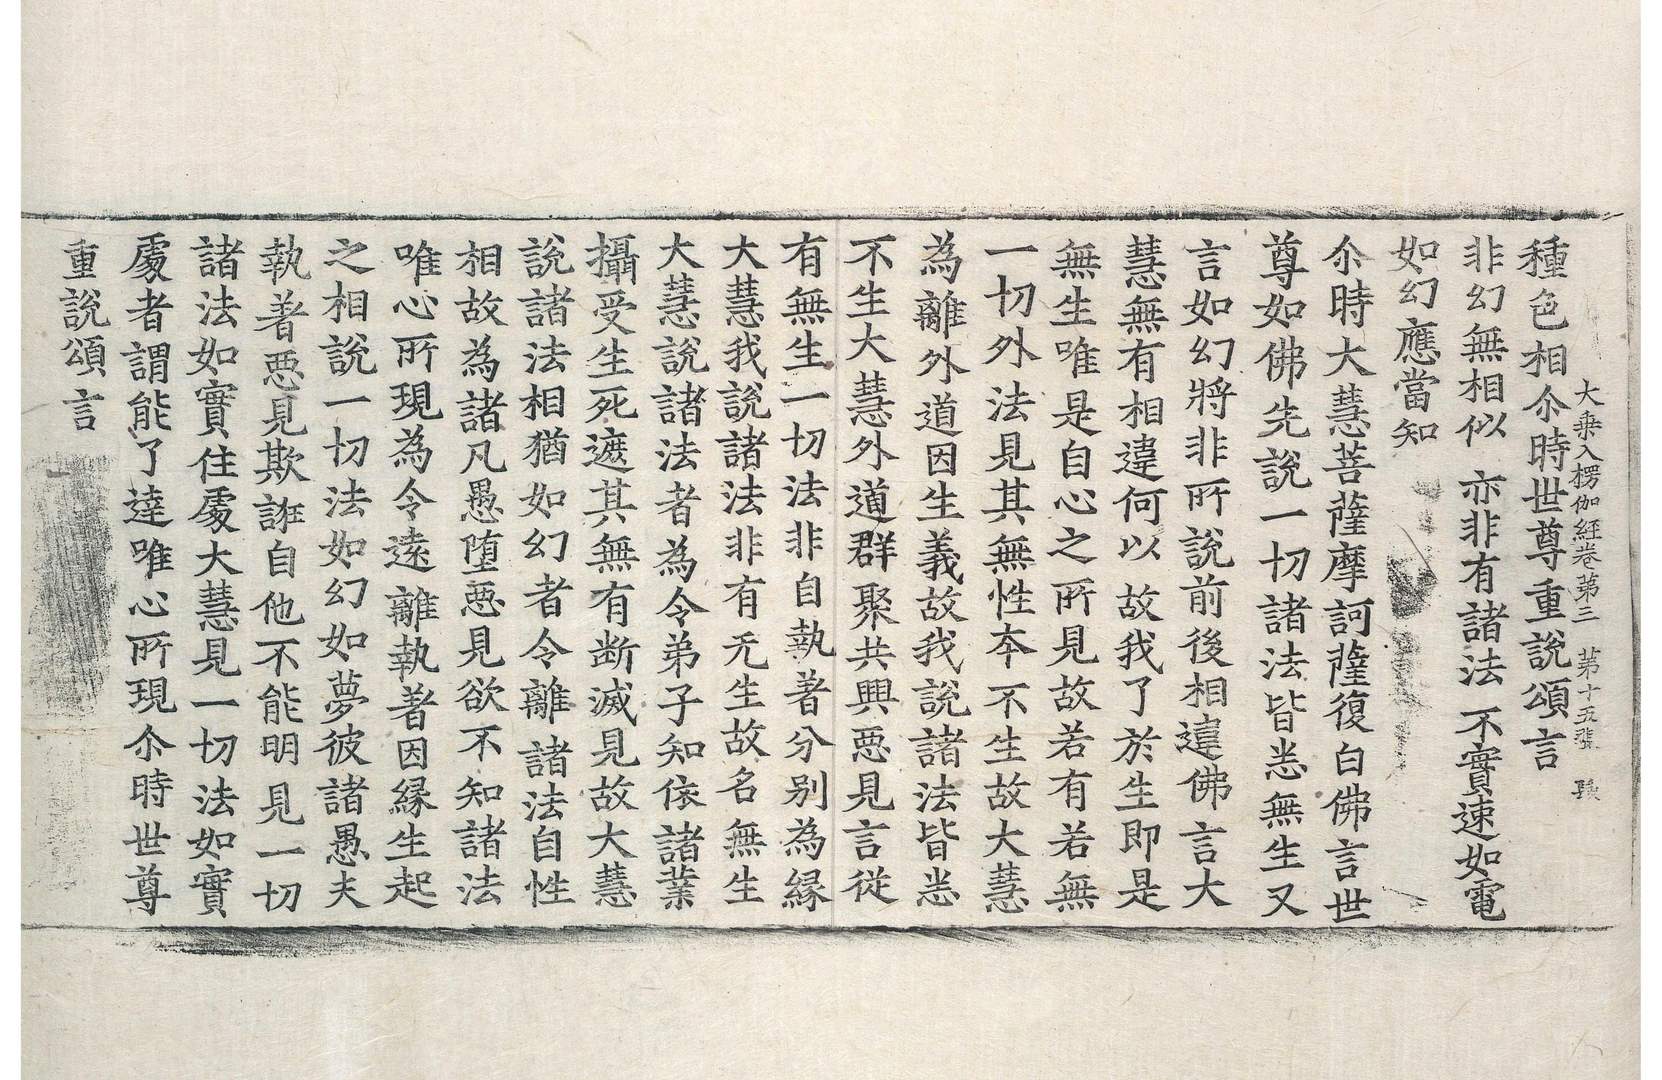 種色相尒時世尊重說頌言
大乗入楞伽經卷第三　第十五張
非幻無相似　亦非有諸法　不實速如電
如幻應當知
尒時大慧菩薩摩訶薩復白佛言世
尊如佛先說一切諸法皆悉無生又
言如幻將非所說前後相違佛言大
慧無有相違何以故我了於生即是
無生唯是自心之所見故若有若無
一切外法見其無性本不生故大慧
為離外道因生義故我說諸法皆悉
不生大慧外道群聚共興惡見言從
有無生一切法非自執著分别為縁
大慧我說諸法非有无生故名無生
大慧說諸法者為令弟子知依諸業
攝受生死遮其無有断滅見故大慧
說諸法相猶如幻者令離諸法自性
相故為諸凡愚堕惡見欲不知諸法
唯心所現為令遠離執著因縁生起
之相說一切法如幻如夢彼諸愚夫
執著惡見欺誑自他不能明見一切
諸法如實住處大慧見一切法如實
處者謂能了達唯心所現尒時世尊
重說頌言